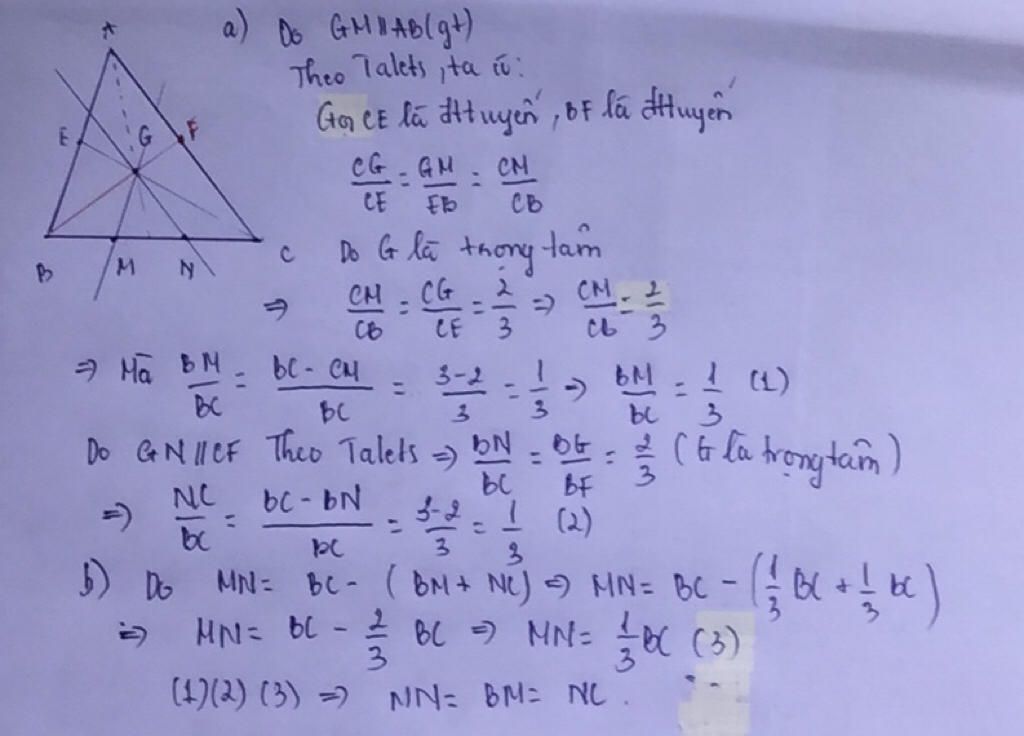 A
E
G
F
B
M
N
C
a) Do GM∥AB(gt)
Theo Talets, ta có:
Gọi CE là đttuyến, BF là đttuyến
CG/CE = GM/EB = CM/CB
Do G là trọng tâm
⇒ CM/CB = CG/CE = 2/3 ⇒ CM/CB = 2/3
⇒ Mà BM/BC = BC - CM/BC = 3-2/3 = 1/3 ⇒ BM/BC = 1/3 (1)
Do GN∥CF Theo Talets ⇒ BN/BC = BG/BF = 2/3 (G là trọng tâm)
⇒ NC/BC = BC - BN/BC = 3-2/3 = 1/3 (2)
b) Do MN = BC - (BM + NC) ⇒ MN = BC - (1/3 BC + 1/3 BC)
⇒ MN = BC - 2/3 BC ⇒ MN = 1/3 BC (3)
(1)(2)(3) ⇒ MN = BM = NC.